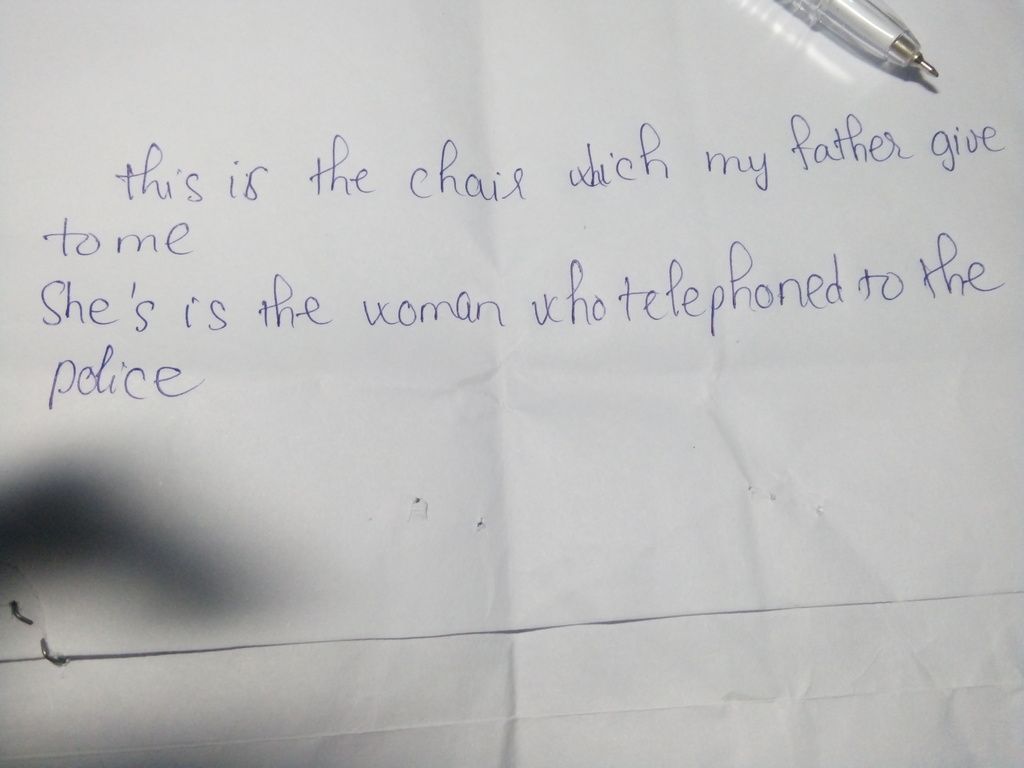 this is the chair which my father give
to me
She's is the woman who telephoned to the
police